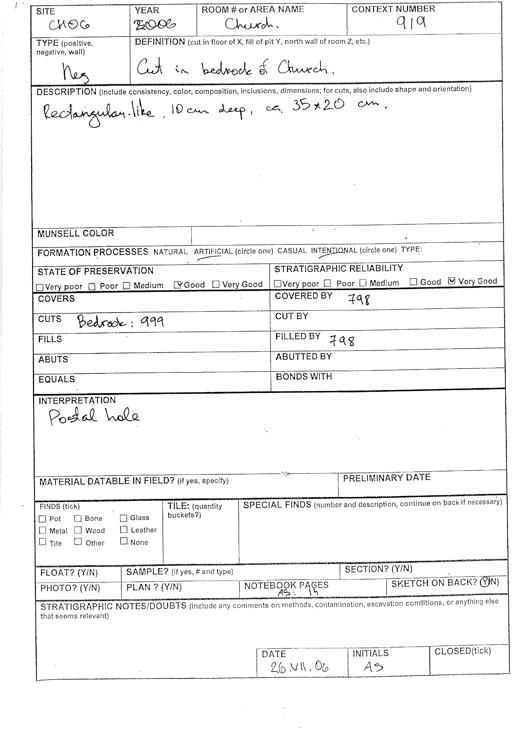 SITE YEAR ROOM # or AREA NAME CONTEXT NUMBER
CHOG 2006 Church. 919
TYPE (positive, negative, wall) DEFINITION (cut in floor of X, fill of pit Y, north wall of room Z, etc.)
Neg Cut in bedrock of Church.
DESCRIPTION (include consistency, color, composition, inclusions, dimensions; for cuts, also include shape and orientation)
Rectangular-like, 10cm deep, ca 35x20 cm.
MUNSELL COLOR
FORMATION PROCESSES NATURAL ARTIFICIAL (circle one) CASUAL INTENTIONAL (circle one) TYPE:
STATE OF PRESERVATION STRATIGRAPHIC RELIABILITY
Very poor Poor Medium Good Very Good Very poor Poor Medium Good Very Good
COVERS COVERED BY 798
CUTS Bedrock: 999 CUT BY
FILLS FILLED BY 798
ABUTS ABUTTED BY
EQUALS BONDS WITH
INTERPRETATION
Postal hole
MATERIAL DATABLE IN FIELD? (if yes, specify) PRELIMINARY DATE
FINDS (tick) TILE: (quantity buckets?) SPECIAL FINDS (number and description, continue on back if necessary)
Pot Bone Glass
Metal Wood Leather
Tile Other None
FLOAT? (Y/N) SAMPLE? (if yes, # and type) SECTION? (Y/N)
PHOTO? (Y/N) PLAN ? (Y/N) NOTEBOOK PAGES SKETCH ON BACK? (Y/N)
AS:
STRATIGRAPHIC NOTES/DOUBTS (include any comments on methods, contamination, excavation conditions, or anything else
that seems relevant)
DATE INITIALS CLOSED(tick)
26.VII.06 AS